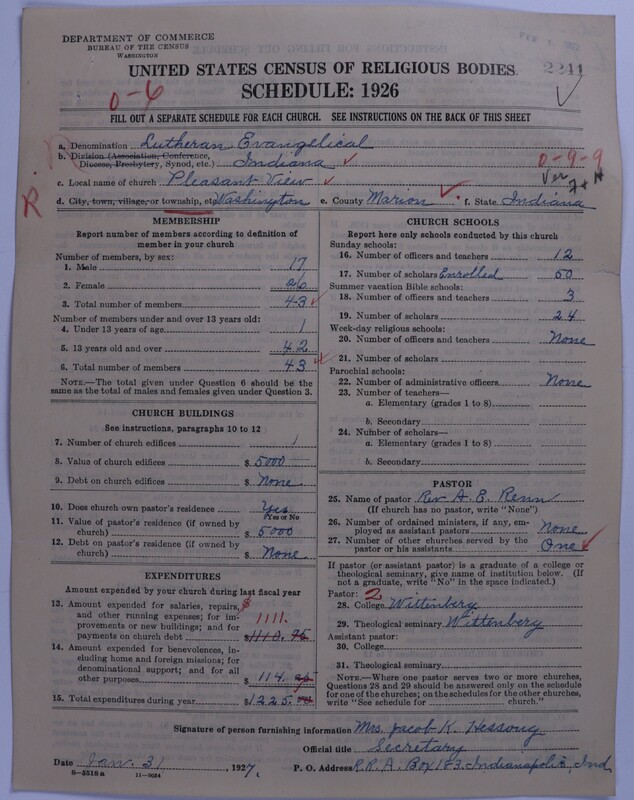 DEPARTMENT OF COMMERCE
BUREAU OF THE CENSUS
WASHINGTON
UNITED STATES CENSUS OF RELIGIOUS BODIES 2241
SCHEDULE: 1926
0-6
FILL OUT A SEPARATE SCHEDULE FOR EACH CHURCH. SEE INSTRUCTIONS ON THE BACK OF THIS SHEET
a. Denomination Lutheran Evangelical
b. Division (Association, Conference, Diocese, Presbytery, Synod, etc.) Indiana
0-9-9
Ver
c. Local name of church Pleasant View
d. City, town, village, or township, etc. Washington e. County Marion f. State Indiana
MEMBERSHIP
Report number of members according to definition of
member in your church
Number of members, by sex:
1. Male 17
2. Female 26
3. Total number of members 43
Number of members under and over 13 years old:
4. Under 13 years of age 1
5. 13 years old and over 42
6. Total number of members 43
NOTE.—The total given under Question 6 should be the
same as the total of males and females given under Question 3.
CHURCH BUILDINGS
See instructions, paragraphs 10 to 12
7. Number of church edifices 1
8. Value of church edifices $ 5000
9. Debt on church edifices $ None
10. Does church own pastor's residence Yes
(Yes or No)
11. Value of pastor's residence (if owned by
church) $ 5000
12. Debt on pastor's residence (if owned by
church) $ None
EXPENDITURES
Amount expended by your church during last fiscal year
13. Amount expended for salaries, repairs,
and other running expenses; for im-
provements or new buildings; and for
payments on church debt $ 1110.75
1111.
14. Amount expended for benevolences, in-
cluding home and foreign missions; for
denominational support; and for all
other purposes $ 114.
15. Total expenditures during year $ 1225.
CHURCH SCHOOLS
Report here only schools conducted by this church
Sunday schools:
16. Number of officers and teachers 12
17. Number of scholars Enrolled 50
Summer vacation Bible schools:
18. Number of officers and teachers 3
19. Number of scholars 24
Week-day religious schools:
20. Number of officers and teachers None
21. Number of scholars
Parochial schools:
22. Number of administrative officers None
23. Number of teachers—
a. Elementary (grades 1 to 8)
b. Secondary
24. Number of scholars—
a. Elementary (grades 1 to 8)
b. Secondary
PASTOR
25. Name of pastor Rev A. E. Renn
(If church has no pastor, write "None")
26. Number of ordained ministers, if any, em-
ployed as assistant pastors None
27. Number of other churches served by the
pastor or his assistants One
If pastor (or assistant pastor) is a graduate of a college or
theological seminary, give name of institution below. (If
not a graduate, write "No" in the space indicated.)
Pastor: 2
28. College Wittenberg
29. Theological seminary Wittenberg
Assistant pastor:
30. College
31. Theological seminary
NOTE.—Where one pastor serves two or more churches,
Questions 28 and 29 should be answered only on the schedule
for one of the churches; on the schedules for the other churches,
write "See schedule for church."
Signature of person furnishing information Mrs. Jacob K. Hessong
Official title Secretary
Date Jan. 31, 1927. P. O. Address R.R.A. Box 183. Indianapolis, Ind
8-5518 a 11-9024